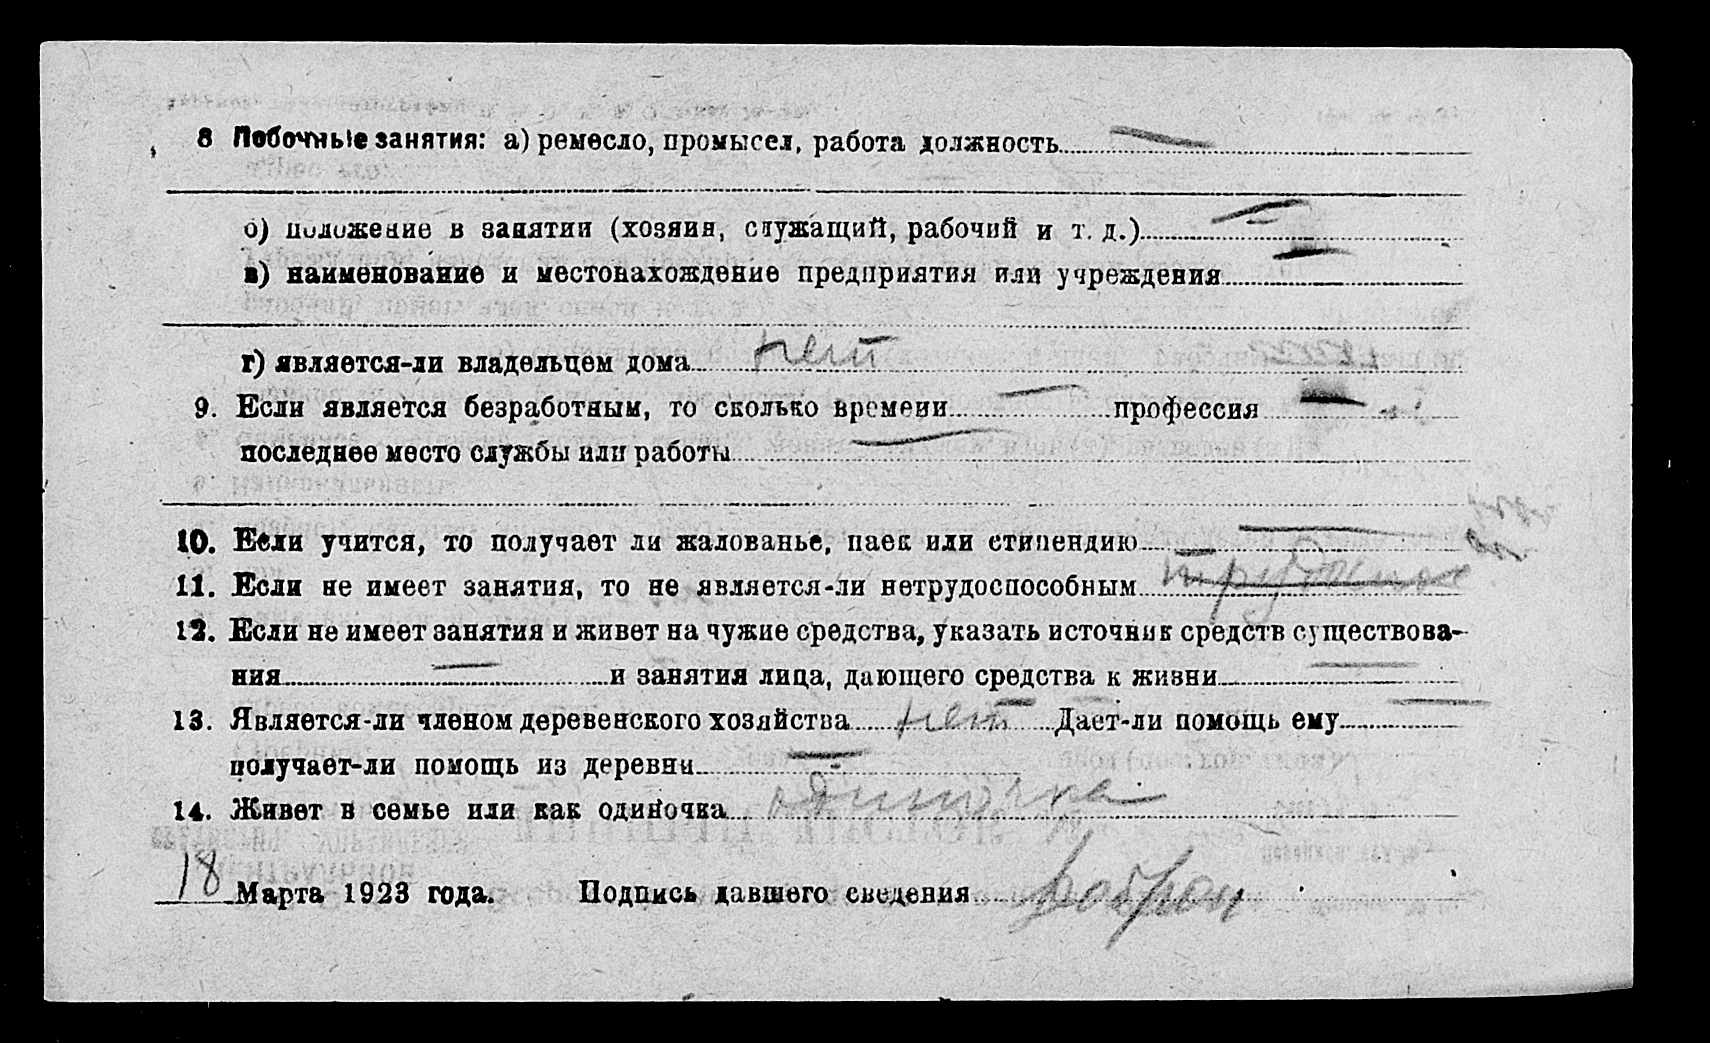 8 Побочные занятия: а) ремесло, промысел, работа должность —
б) положение в занятии (хозяин, служащий, рабочий и т. д.) —
в) наименование и местонахождение предприятия или учреждения —
г) является-ли владельцем дома нет
9. Если является безработным, то сколько времени — профессия —
последнее место службы или работы —
10. Если учится, то получает ли жалованье, паек или стипендию —
11. Если не имеет занятия, то не является-ли нетрудоспособным
12. Если не имеет занятия и живет на чужие средства, указать источник средств существова-
ния — и занятия лица, дающего средства к жизни —
13. Является-ли членом деревенского хозяйства нет Дает-ли помощь ему —
получает-ли помощь из деревни —
14. Живет в семье или как одиночка одиночка
18 Марта 1923 года. Подпись давшего сведения